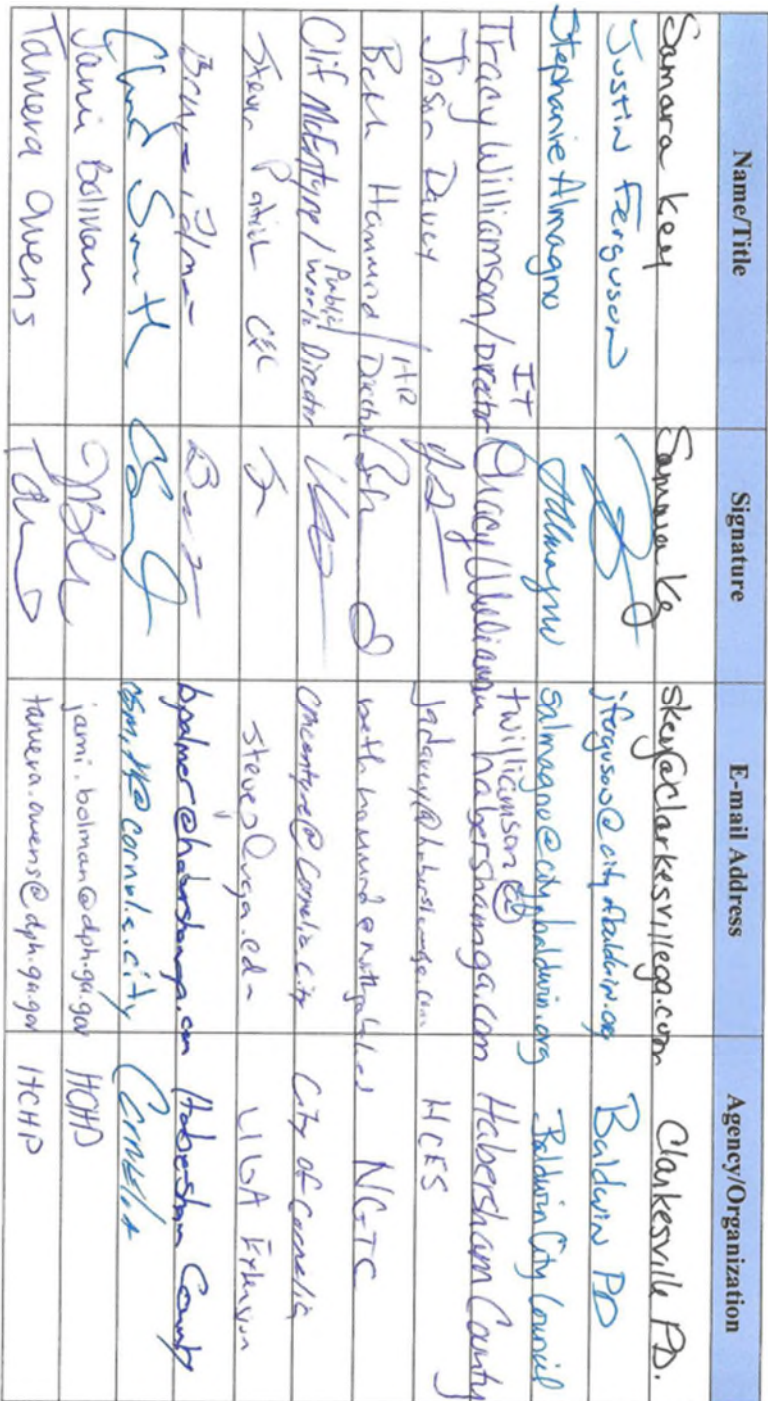 Name/Title Signature E-mail Address Agency/Organization
Samara Key skey@clarkesvillega.com Clarkesville PD.
Justin Ferguson jferguson@cityofbaldwin.org Baldwin PD
Stephanie Almagno SAlmagno salmagno@cityofbaldwin.org Baldwin City Council
Tracy Williamson/IT Director Tracy Williamson twilliamson@habershamga.com Habersham County
Jason Davey jadavey@habershamga.com HCES
Beth Hammond/HR Director Beth NGTC
Clif McEntyre/Public Works Director City of Cornelia
Steven Patrick CEC UGA Extension
bpalmer@habershamga.com Habersham County
Chad Smith csmith@cornelia.city Cornelia
Jami Bolman jami.bolman@dph.ga.gov HCHD
Tamera Owens tamera.owens@dph.ga.gov HCHD